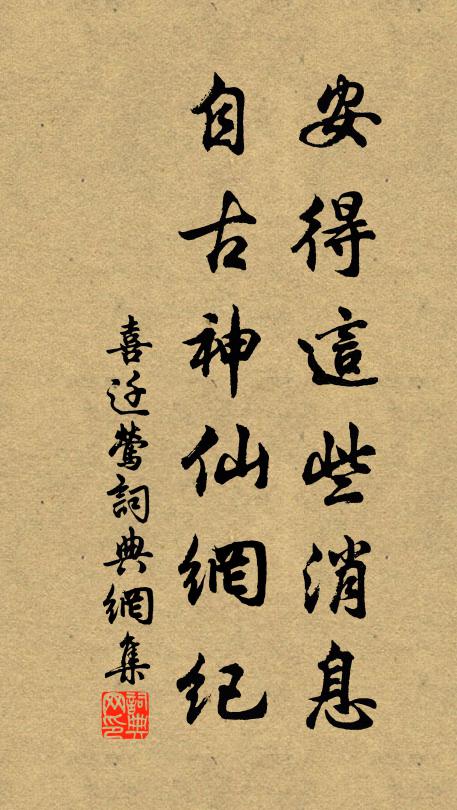 安得這些消息
自古神仙網紀
喜迁鶯詞典網集
詞典网印